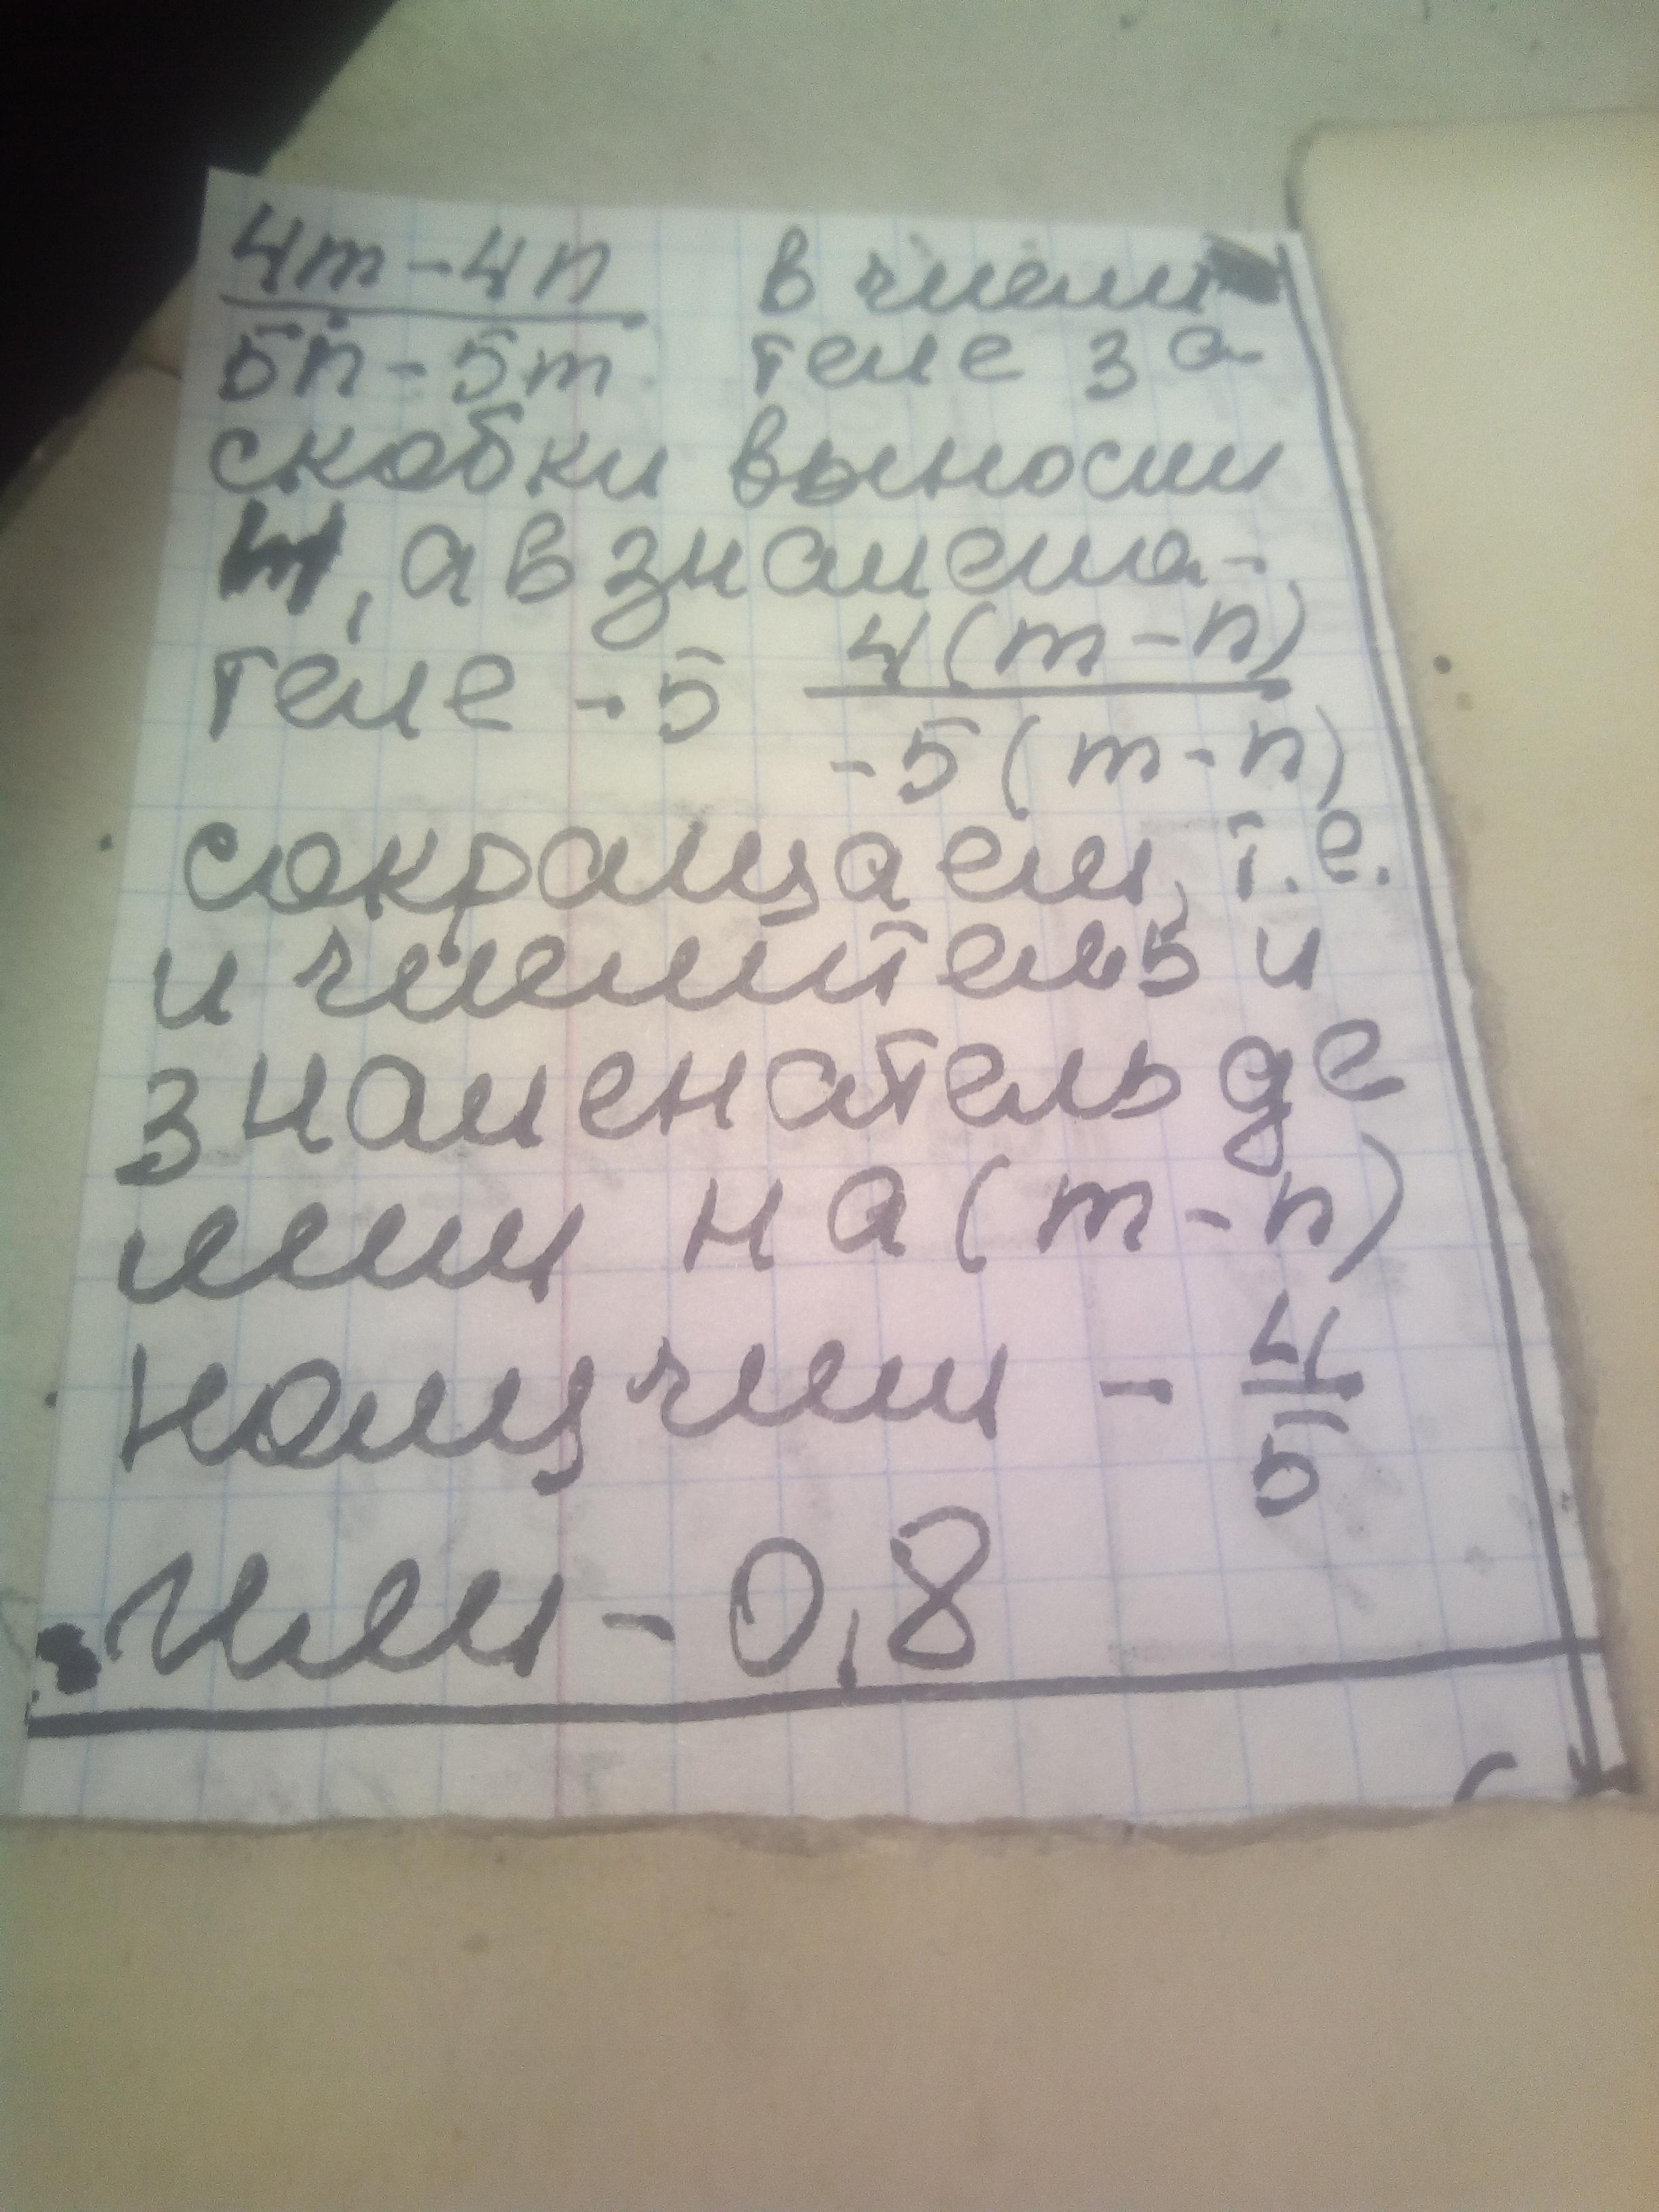 4m-4n в числи
5n-5m теле за
скобки выносим
4, а в знамена-
теле -5 4(m-n)
-5(m-n)
сокращаем, т.е.
и числитель и
знаменатель де
лим на (m-n)
получим - 4/5
или -0,8